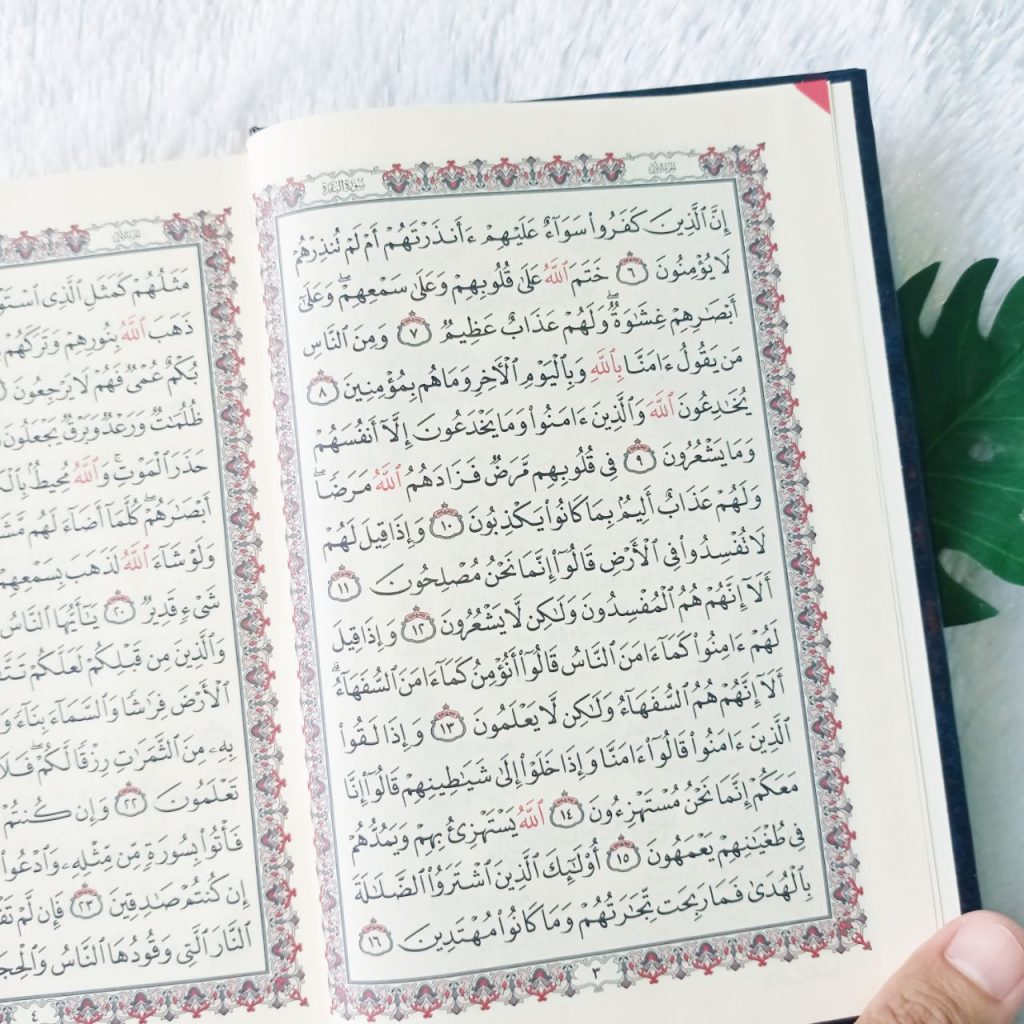 سورة البقرة
الجزء الأول
إِنَّ ٱلَّذِينَ كَفَرُوا۟ سَوَآءٌ عَلَيْهِمْ ءَأَنذَرْتَهُمْ أَمْ لَمْ تُنذِرْهُمْ
لَا يُؤْمِنُونَ ٦ خَتَمَ ٱللَّهُ عَلَىٰ قُلُوبِهِمْ وَعَلَىٰ سَمْعِهِمْ ۖ وَعَلَىٰٓ
أَبْصَٰرِهِمْ غِشَٰوَةٌ ۖ وَلَهُمْ عَذَابٌ عَظِيمٌ ٧ وَمِنَ ٱلنَّاسِ
مَن يَقُولُ ءَامَنَّا بِٱللَّهِ وَبِٱلْيَوْمِ ٱلْءَاخِرِ وَمَا هُم بِمُؤْمِنِينَ ٨
يُخَٰدِعُونَ ٱللَّهَ وَٱلَّذِينَ ءَامَنُوا۟ وَمَا يَخْدَعُونَ إِلَّآ أَنفُسَهُمْ
وَمَا يَشْعُرُونَ ٩ فِى قُلُوبِهِم مَّرَضٌ فَزَادَهُمُ ٱللَّهُ مَرَضًا ۖ
وَلَهُمْ عَذَابٌ أَلِيمٌۢ بِمَا كَانُوا۟ يَكْذِبُونَ ١٠ وَإِذَا قِيلَ لَهُمْ
لَا تُفْسِدُوا۟ فِى ٱلْأَرْضِ قَالُوٓا۟ إِنَّمَا نَحْنُ مُصْلِحُونَ ١١
أَلَآ إِنَّهُمْ هُمُ ٱلْمُفْسِدُونَ وَلَٰكِن لَّا يَشْعُرُونَ ١٢ وَإِذَا قِيلَ
لَهُمْ ءَامِنُوا۟ كَمَآ ءَامَنَ ٱلنَّاسُ قَالُوٓا۟ أَنُؤْمِنُ كَمَآ ءَامَنَ ٱلسُّفَهَآءُ ۗ
أَلَآ إِنَّهُمْ هُمُ ٱلسُّفَهَآءُ وَلَٰكِن لَّا يَعْلَمُونَ ١٣ وَإِذَا لَقُوا۟
ٱلَّذِينَ ءَامَنُوا۟ قَالُوٓا۟ ءَامَنَّا وَإِذَا خَلَوْا۟ إِلَىٰ شَيَٰطِينِهِمْ قَالُوٓا۟ إِنَّا
مَعَكُمْ إِنَّمَا نَحْنُ مُسْتَهْزِءُونَ ١٤ ٱللَّهُ يَسْتَهْزِئُ بِهِمْ وَيَمُدُّهُمْ
فِى طُغْيَٰنِهِمْ يَعْمَهُونَ ١٥ أُو۟لَٰٓئِكَ ٱلَّذِينَ ٱشْتَرَوُا۟ ٱلضَّلَٰلَةَ
بِٱلْهُدَىٰ فَمَا رَبِحَت تِّجَٰرَتُهُمْ وَمَا كَانُوا۟ مُهْتَدِينَ ١٦
٣
الجزء الأول
مَثَلُهُمْ كَمَثَلِ ٱلَّذِى
ذَهَبَ ٱللَّهُ بِنُورِهِمْ وَتَرَكَهُمْ
بُكْمٌ عُمْىٌ فَهُمْ لَا يَرْجِعُونَ
ظُلُمَٰتٌ وَرَعْدٌ وَبَرْقٌ يَجْعَلُونَ
حَذَرَ ٱلْمَوْتِ ۚ وَٱللَّهُ مُحِيطٌۢ
أَبْصَٰرَهُمْ ۖ كُلَّمَآ أَضَآءَ لَهُم
وَلَوْ شَآءَ ٱللَّهُ لَذَهَبَ بِسَمْعِهِمْ
شَىْءٍ قَدِيرٌ ٢٠ يَٰٓأَيُّهَا ٱلنَّاسُ
وَٱلَّذِينَ مِن قَبْلِكُمْ لَعَلَّكُمْ
ٱلْأَرْضَ فِرَٰشًا وَٱلسَّمَآءَ بِنَآءً
بِهِۦ مِنَ ٱلثَّمَرَٰتِ رِزْقًا لَّكُمْ ۖ فَلَا
تَعْلَمُونَ ٢٢ وَإِن كُنتُمْ
فَأْتُوا۟ بِسُورَةٍ مِّن مِّثْلِهِۦ وَٱدْعُوا۟
إِن كُنتُمْ صَٰدِقِينَ ٢٣ فَإِن لَّمْ
ٱلنَّارَ ٱلَّتِى وَقُودُهَا ٱلنَّاسُ
٤